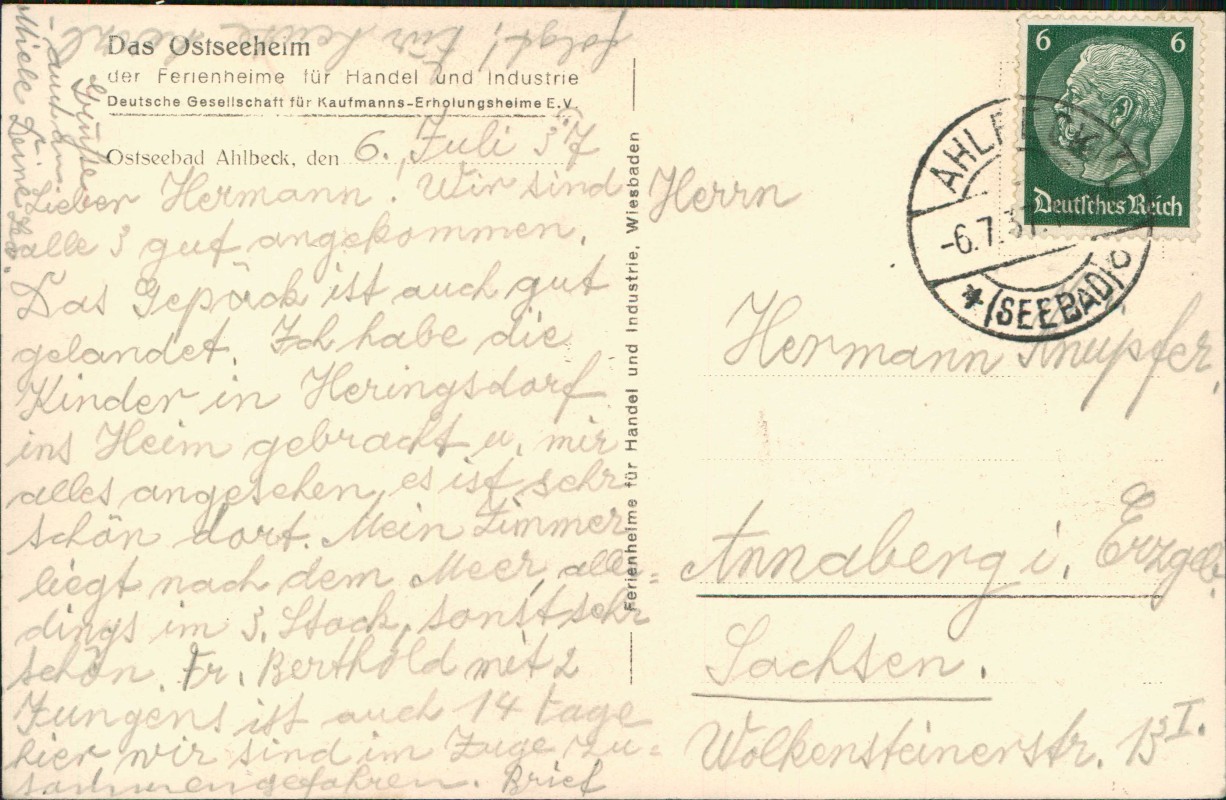 Das Ostseeheim
der Ferienheime für Handel und Industrie
Deutsche Gesellschaft für Kaufmanns-Erholungsheime E.V.
Ostseebad Ahlbeck, den 6. Juli 37
Lieber Hermann. Wir sind
alle 3 gut angekommen.
Das Gepäck ist auch gut
gelandet. Ich habe die
Kinder in Heringsdorf
ins Heim gebracht u. mir
alles angesehen, es ist sehr
schön dort. Mein Zimmer
liegt nach dem Meer, aller=
dings im 3. Stock, sonst sehr
schön. Fr. Berthold mit 2
Jungens ist auch 14 tage
hier wir sind im Zuge zu=
sammengefahren. Brief
folgt, für heute
Grüße
Deine
Ferienheime für Handel und Industrie, Wiesbaden
6 6
Deutsches Reich
AHLBECK
-6.7.37.
* (SEEBAD) c
Herrn
Hermann Knüpfer,
Annaberg i. Erzgeb.
Sachsen.
Wolkensteinerstr. 13 I.